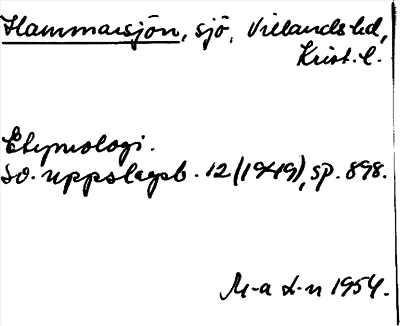 Hammarsjön, sjö, Villands hd,
Krist. l.
Etymologi.
So. uppslagsb. 12 (1949), sp. 898.
M-a L-n 1954.